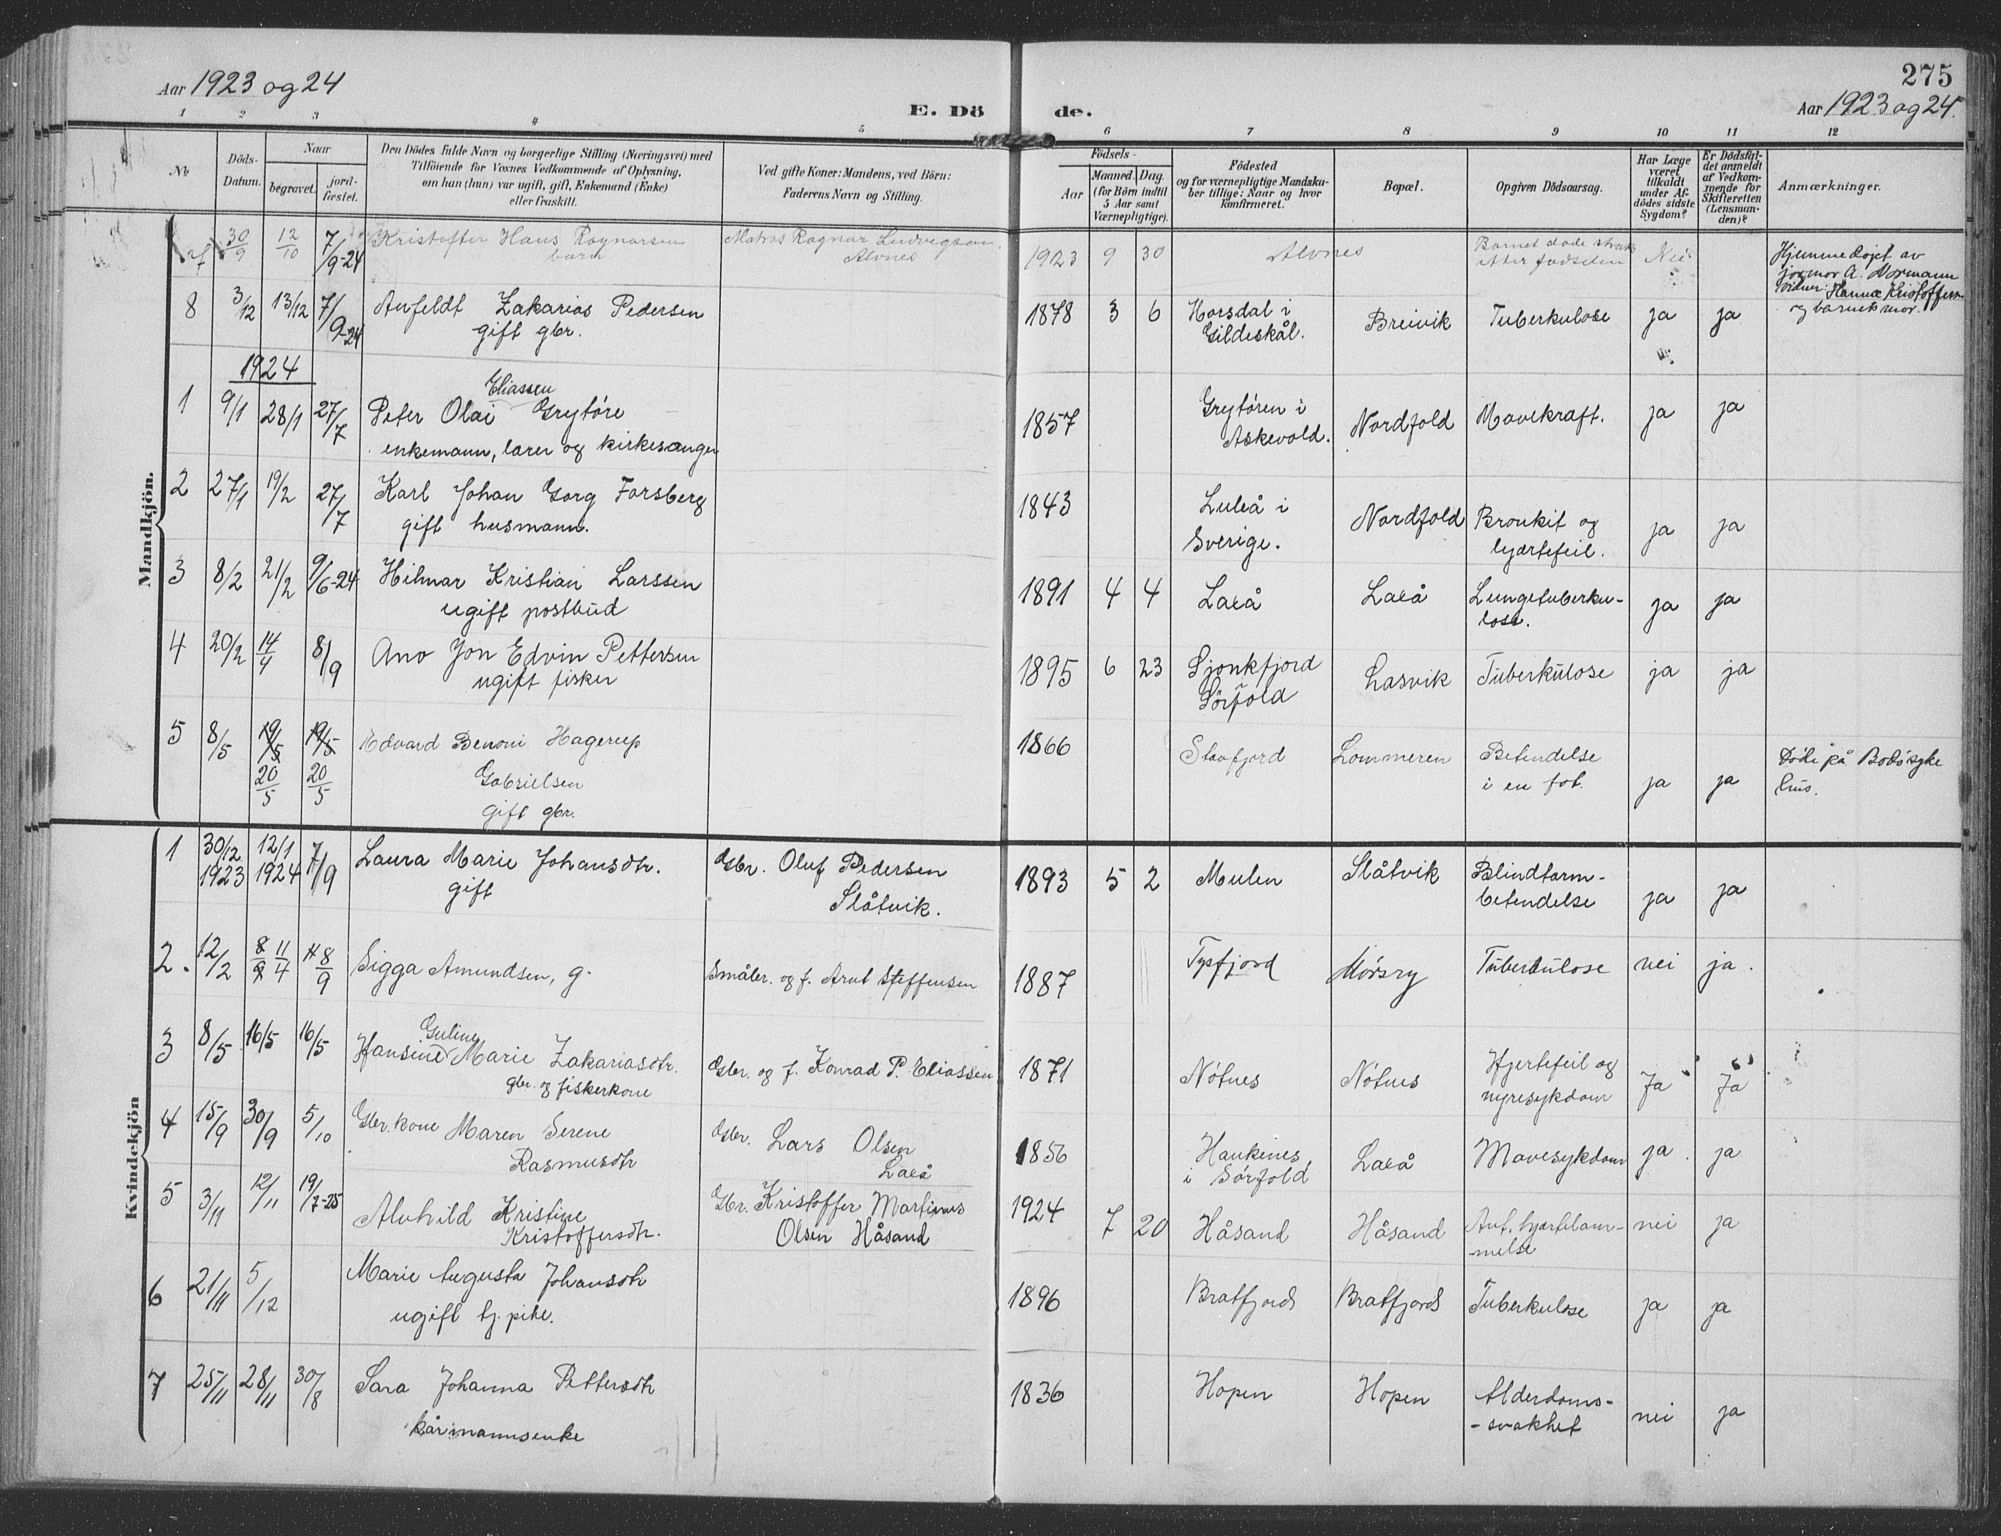 275
Aar 1923 og 24
E. Dö de.
Aar 1923 og 24.
1 2 3 4 5 6 7 8 9 10 11 12
No
Döds-
Datum.
Naar
begravet.
jord-
fæstet.
Den Dödes fulde Navn og borgerlige Stilling (Næringsvei) med
Tilföiende för Voxnes Vedkommende af Oplysning,
om han (hun) var ugift, gift, Enkemand (Enke)
eller fraskilt.
Ved gifte Koner: Mandens, ved Börn:
Faderens Navn og Stilling.
Födsels-
Aar
Maaned. Dag.
(for Börn indtil
5 Aar samt
Værnepligtige).
Födested
og for værnepligtige Mandska-
ber tillige: Naar og hvor
konfirmeret.
Bopæl.
Opgiven Dödsaarsag.
Har Læge
været
tilkaldt
under Af-
dödes sidste
Sygdom?
Er Dödsfal-
det anmeldt
af Vedkom-
mende for
Skifteretten
(Lensman-
den)?
Anmærkninger.
Mandkjön.
30/9 12/10 7/9-24 Kristoffer Hans Ragnarsen
barn
Matros Ragnar Ludvigsen
Alvnes
1923 9 30 Alvnes
Barnet døde strax
efter fødselen
Nei
Hjemmedøpt av
jormor A. Normann
Vidner: Hanna Kristoffers
og barnets mor.
8 3/12 13/12 7/9-24 Anfeldt Zakarias Pedersen
gift gbr.
1878 3 6 Horsdal i
Gildeskål.
Breivik Tuberkulose ja ja
1924
1 9/1 28/1 27/7 Peter Olai Eliassen Grytöre
enkemann, lærer og kirkesanger
1857 Grytören i
Askevold.
Nordfold Mavekræft. ja ja
2 27/1 19/2 27/7 Karl Johan Gorg Forsberg
gift husmann.
1843 Luleå i
Sverige.
Nordfold Bronkit og
hjærtefeil.
ja ja
3 8/2 21/2 9/6-24 Hilmar Kristian Larssen
ugift postbud
1891 4 4 Laxå Laxå Lungetuberku-
lose.
ja ja
4 20/2 14/4 8/9 Ano Jon Edvin Pettersen
ugift fisker
1895 6 23 Sjonkfjord
i Sörfold
Lasvik Tuberkulose ja ja
5 8/5 19/5 19/5 Edvard Benoni Hagerup
20/5 20/5 Gabrielsen
gift gbr.
1866 Stavfjord Lommeren Betendelse
i en fot.
ja ja
Döde på Bodö syke
hus.
Kvindekjön
1 30/12 1923 12/1 1924 7/9 Laura Marie Johansdtr.
gift
Gbr. Oluf Pedersen
Slåtvik.
1893 5 2 Mulen Slåtvik Blindtarm-
betendelse
ja ja
2. 12/2 8/9 11/4 8/9 Sigga Amundsen, g.
Småbr. og f. Arnt Steffensen
1887 Tysfjord Mörsry Tuberkulose nei ja.
3 8/5 16/5 16/5 Hansine Guline Marie Zakariasdtr.
gbr. og fiskerkone
Gbr. og f. Konrad P. Eliassen
1871 Nötnes Nötnes Hjertefeil og
nyresykdom
Ja Ja
4 15/9 30/9 5/10 Gbr. kone Maren Serene
Rasmusdtr
Gbr. Lars Olsen
Laxå
1856 Haukenes
i Sörfold
Laxå Mavesykdom ja. ja
5 3/11 12/11 19/7-25 Alvhild Kristine
Kristoffersdtr.
Gbr. Kristoffer Martinus
Olsen Håsand
1924 7 20 Håsand Håsand Ant. hjærtelam-
-melse
nei ja
6 21/11 5/12 Marie Augusta Johansdtr
ugift hj. pike.
1896 Bratfjord Bratfjord Tuberkulose ja ja
7 25/11 28/11 30/8 Sara Johanna Pettersdtr
kårmannsenke
1836 Hopen Hopen Alderdoms-
-svakhet
nei ja